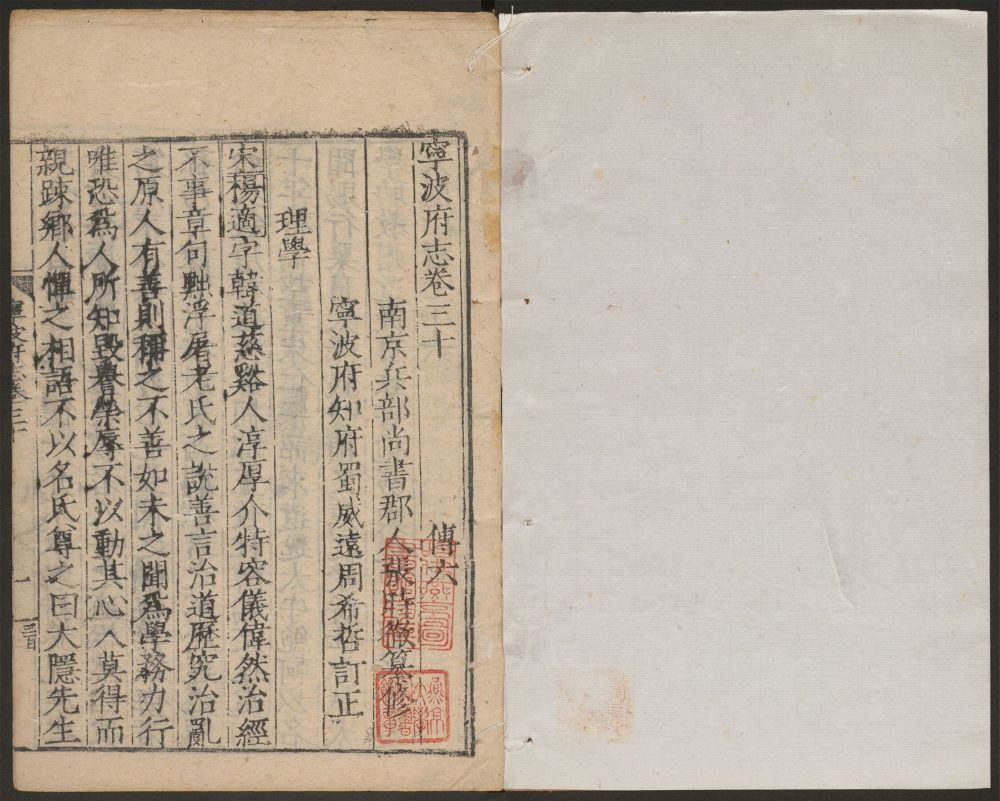 寧波府志卷三十
傳六
南京兵部尚書郡人張時徹纂修
寧波府知府蜀威遠周希哲訂正
理學
宋楊適字韓道慈谿人淳厚介特容儀偉然治經
不事章句黜浮屠老氏之說善言治道歷究治亂
之原人有善則稱之不善如未之聞為學務力行
唯恐為人所知毀譽榮辱不以動其心人莫得而
親踈鄉人憚之相語不以名氏尊之曰大隱先生
寧波府志卷三十
一